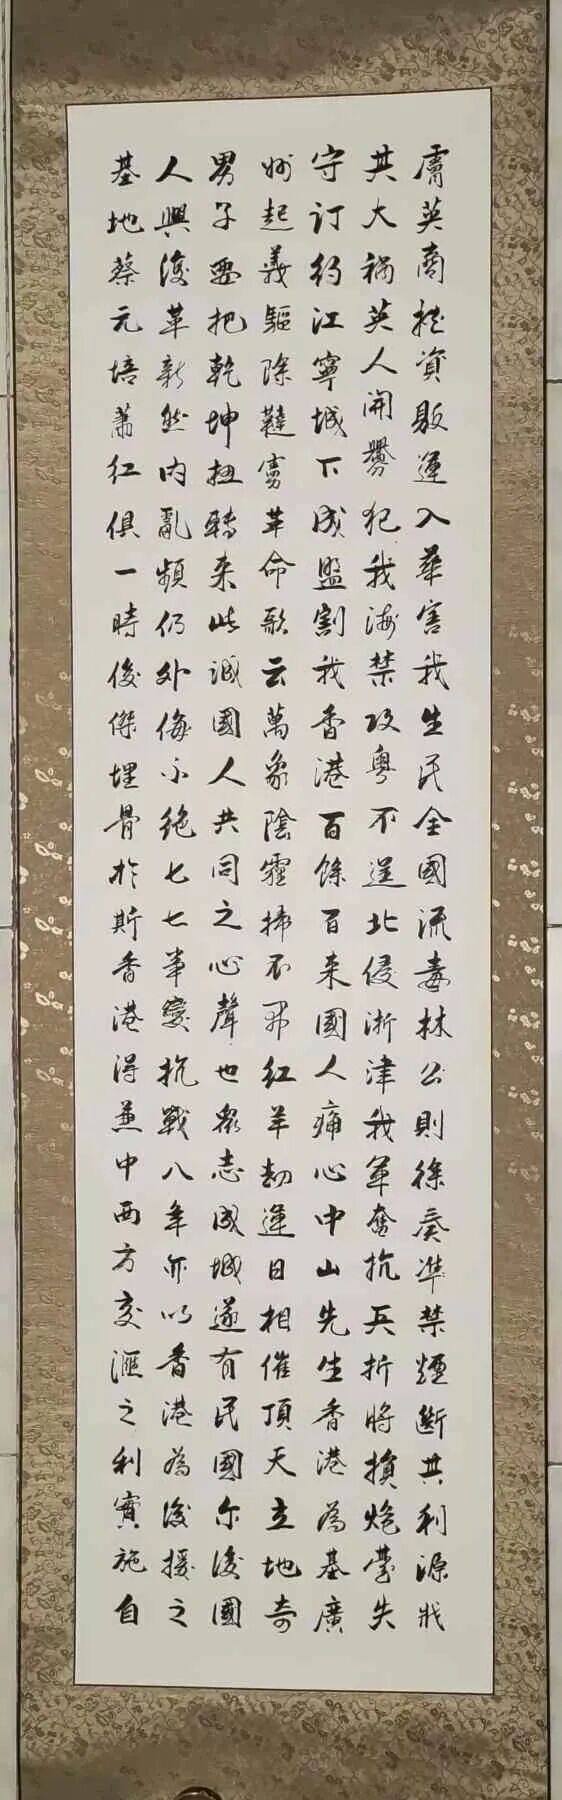 膚英商挾資販運入華害我生民全國流毒林公則徐奏準禁煙斷其利源戕
其大禍英人開釁犯我海禁攻粵不逞北侵浙津我軍奮抗兵折將損炮臺失
守訂約江寧城下成盟割我香港百餘百來國人痛心中山先生香港為基廣
州起義驅除韃虜革命歌云萬象陰霾掃不開紅羊劫運日相催頂天立地奇
男子要把乾坤扭轉來此誠國人共同之心聲也眾志成城遂有民國尔後國
人興後革新然内亂頻仍外侮不絶七七事變抗戰八年亦以香港為後援之
基地蔡元培蕭紅俱一時俊傑埋骨於斯香港得兼中西方交滙之利實施自